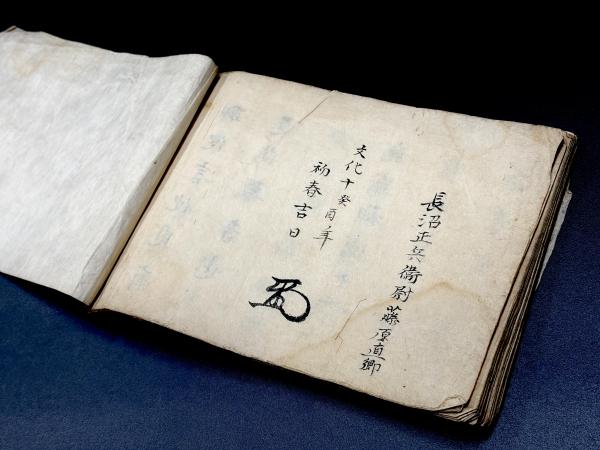 長沼正兵衛尉藤原直郷
文化十癸酉年
初春吉日